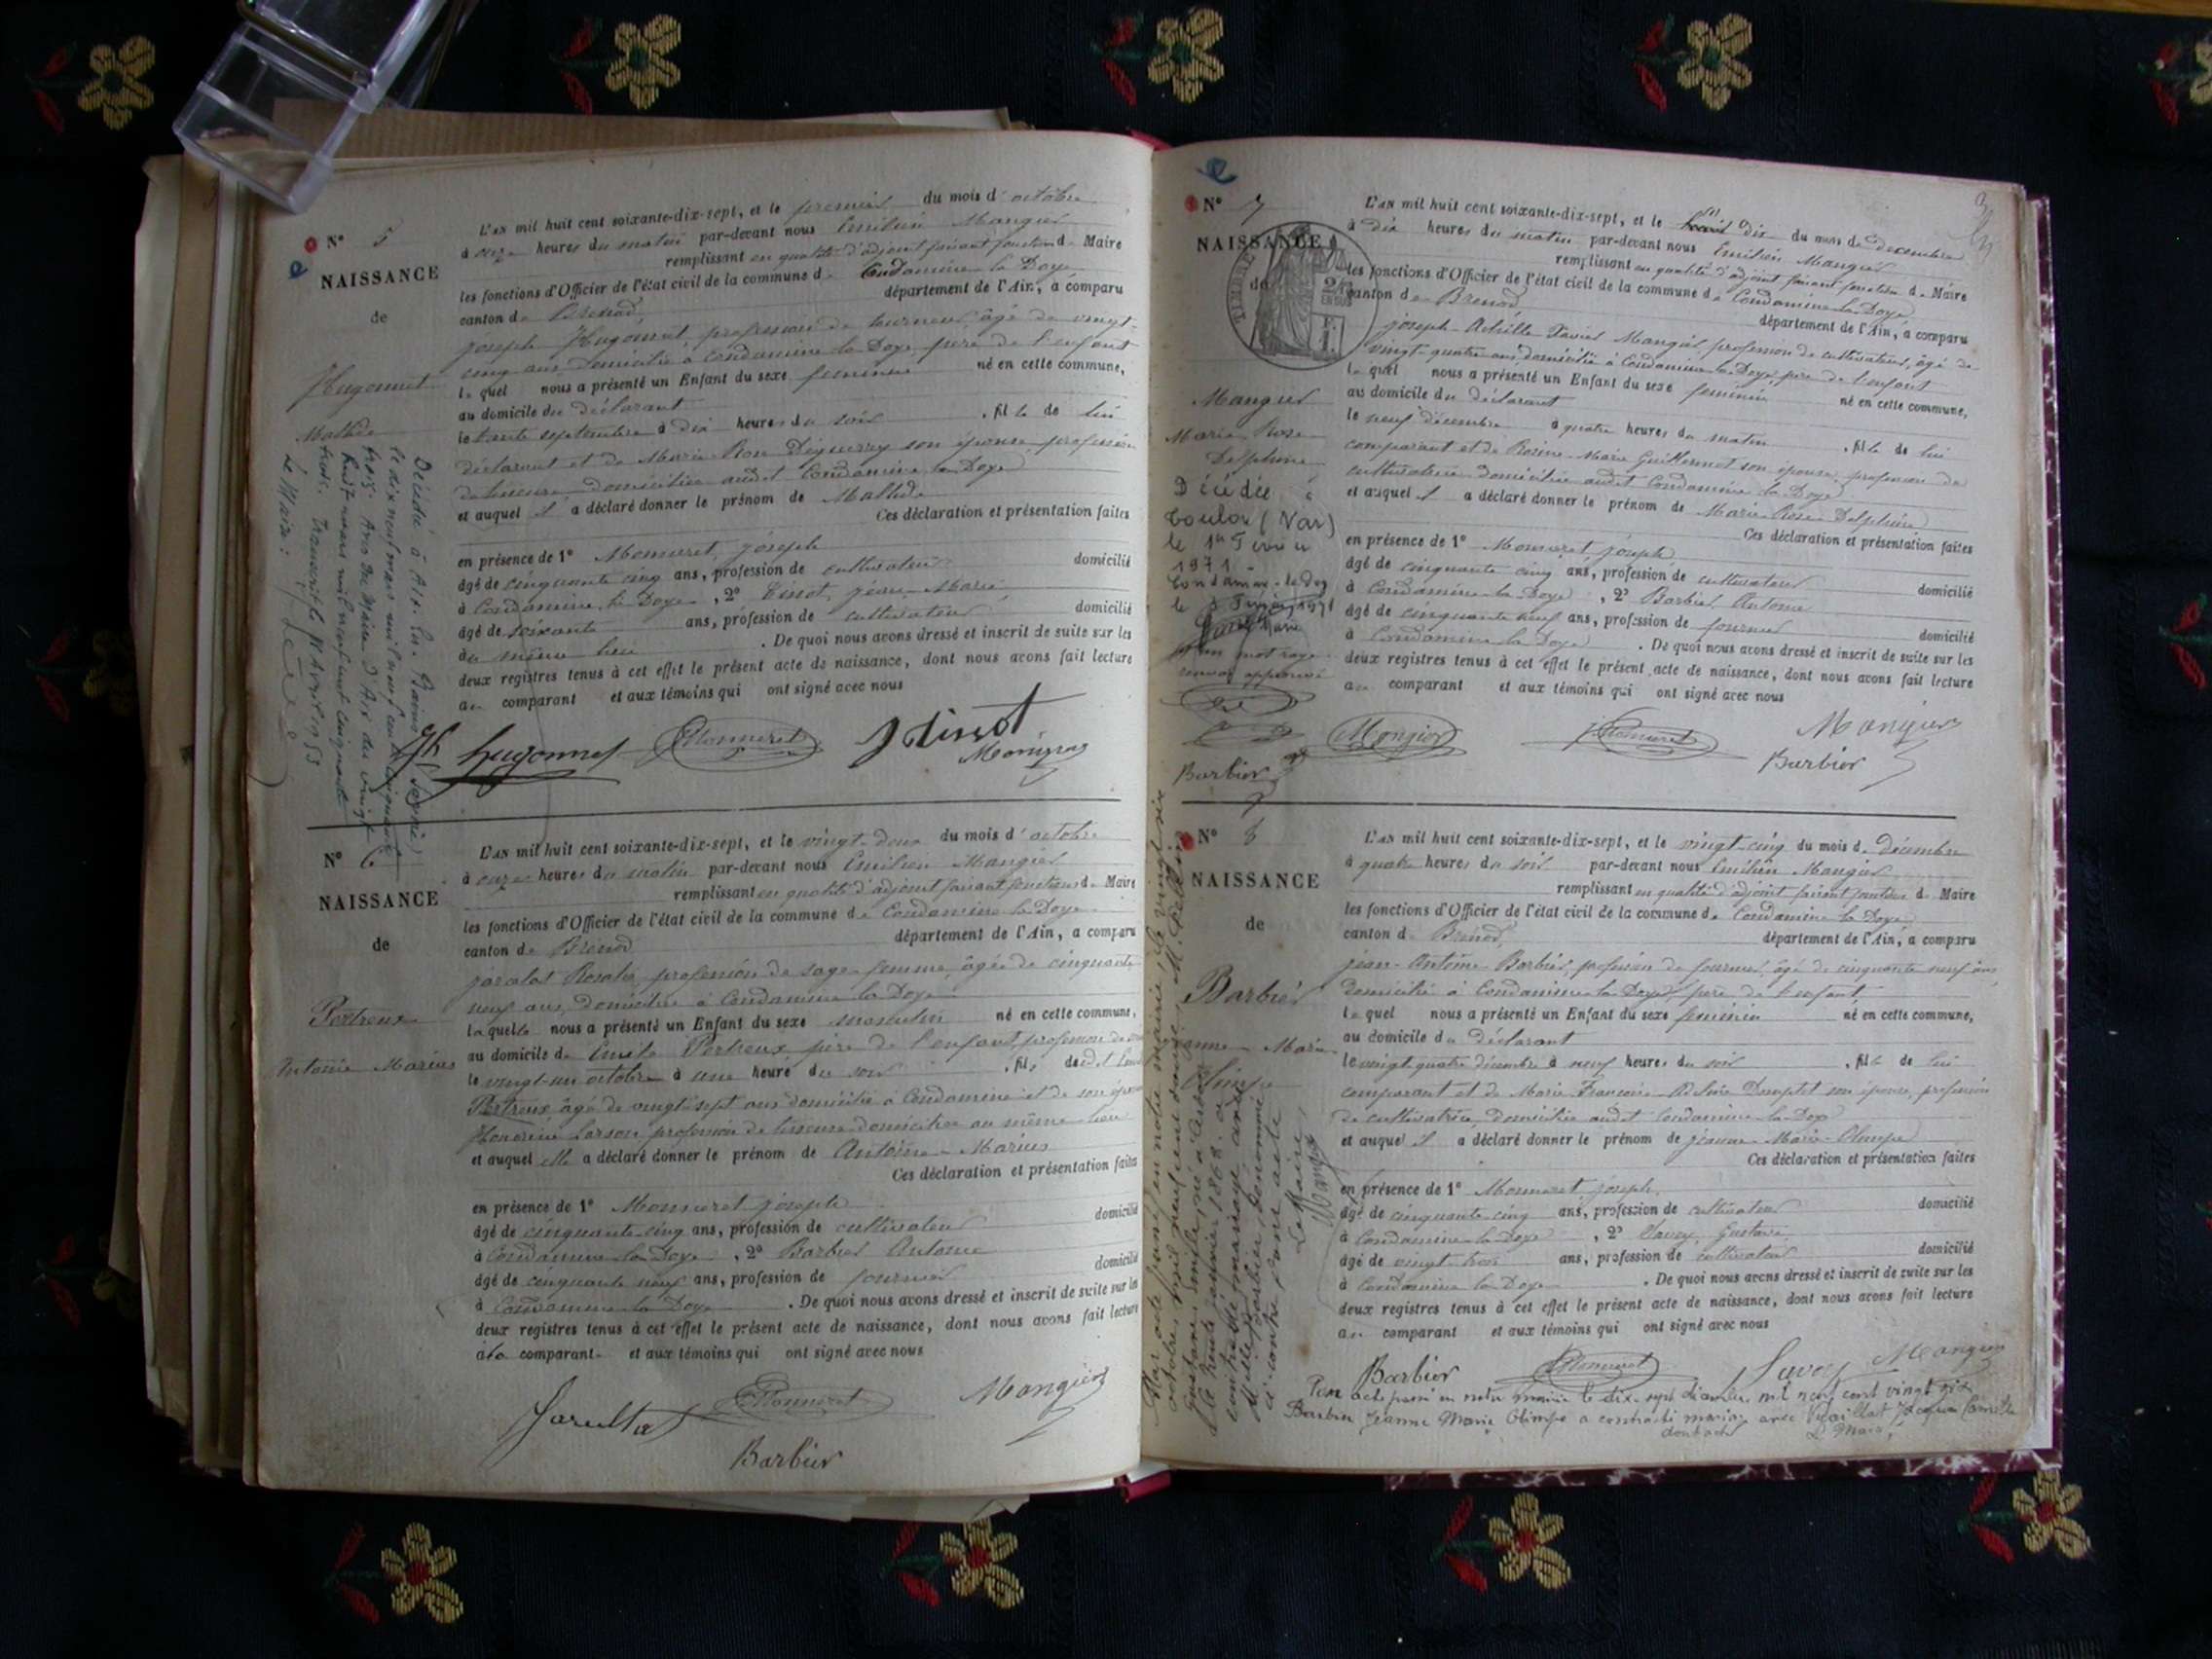 N° 5
NAISSANCE
de
Hugonnet
Mathilde
Décédée à Aix-les-Bains (Savoie)
le dix neuf mars mil neuf cent cinquante
trois. Avis du Maire d'Aix du vingt
huit mars mil neuf cent cinquante
trois. Transcrit le
Le Maire :
L'an mil huit cent soixante-dix-sept, et le premier du mois d'octobre
à onze heures du matin par-devant nous Emilien Mangier
remplissant en qualité d'adjoint faisant fonction de Maire
les fonctions d'Officier de l'état civil de la commune de Condamine la Doye
canton de Brenod, département de l'Ain, a comparu
joseph Hugonnet, profession de tourneur, âgé de vingt-
cinq ans domicilié à Condamine la Doye, père de l'enfant
lequel nous a présenté un Enfant du sexe féminin né en cette commune,
au domicile du déclarant
le trente septembre à dix heures du soir , fille de lui
déclarant et de Marie son épouse, profession
domiciliée audit Condamine la Doye
et auquel il a déclaré donner le prénom de Mathilde
Ces déclaration et présentation faites
en présence de 1° Monneret, joseph domicilié
âgé de cinquante cinq ans, profession de cultivateur
à Condamine la Doye, 2° Tinot, jean-Marie,
âgé de soixante ans, profession de cultivateur domicilié
du même lieu . De quoi nous avons dressé et inscrit de suite sur les
deux registres tenus à cet effet le présent acte de naissance, dont nous avons fait lecture
au comparant et aux témoins qui ont signé avec nous
Jh Hugonnet Monneret Tinot
Mangier
N° 6
NAISSANCE
de
Pertreux
Antonin Marius
L'an mil huit cent soixante-dix-sept, et le vingt-deux du mois d'octobre
à onze heures du matin par-devant nous Emilien Mangier
remplissant en qualité d'adjoint faisant fonctions de Maire
les fonctions d'Officier de l'état civil de la commune de Condamine la Doye
canton de Brénod département de l'Ain, a comparu
Rosalie, profession de sage-femme, âgée de cinquante
neuf ans, domiciliée à Condamine la Doye
laquelle nous a présenté un Enfant du sexe masculin né en cette commune,
au domicile de Emile Pertreux, père de l'enfant, profession de
le vingt-un octobre à une heure du soir , fils dudit
Pertreux âgé de vingt-sept ans domicilié à Condamine et de son épouse
Honorine profession de domiciliée au même lieu
et auquel elle a déclaré donner le prénom de Antonin-Marius
Ces déclaration et présentation faites
en présence de 1° Monneret joseph domicilié
âgé de cinquante-cinq ans, profession de cultivateur
à Condamine la Doye, 2° Barbier Antoine
âgé de cinquante neuf ans, profession de fournier domicilié
à Condamine la Doye . De quoi nous avons dressé et inscrit de suite sur les
deux registres tenus à cet effet le présent acte de naissance, dont nous avons fait lecture
à la comparante et aux témoins qui ont signé avec nous
Monneret Mangier
Barbier
N° 7
NAISSANCE
de
TIMBRE
Mangier
Marie-Rose
Delphine
Décédée à
Toulon (Var)
le 1er Février
1971
Condamine-la-Doye
le Février 1971
un mot rayé
approuvé
Barbier
L'an mil huit cent soixante-dix-sept, et le dix du mois de décembre
à dix heures du matin par-devant nous Emilien Mangier
remplissant en qualité d'adjoint faisant fonction de Maire
les fonctions d'Officier de l'état civil de la commune de Condamine la Doye
canton de Brenod département de l'Ain, a comparu
joseph-Achille Xavier Mangier profession de cultivateur, âgé de
vingt-quatre ans domicilié à Condamine la Doye père de l'enfant
lequel nous a présenté un Enfant du sexe féminin né en cette commune,
au domicile du déclarant
le neuf décembre à quatre heures du matin , fille de lui
comparant et de Rosine-Marie Guillermet son épouse, profession de
cultivatrice domiciliée audit Condamine la Doye
et auquel il a déclaré donner le prénom de Marie-Rose-Delphine
Ces déclaration et présentation faites
en présence de 1° Monneret, joseph
âgé de cinquante cinq ans, profession de cultivateur domicilié
à Condamine la Doye, 2° Barbier, Antoine
âgé de cinquante neuf ans, profession de fournier domicilié
à Condamine la Doye . De quoi nous avons dressé et inscrit de suite sur les
deux registres tenus à cet effet le présent acte de naissance, dont nous avons fait lecture
au comparant et aux témoins qui ont signé avec nous
Mongier Monneret Mangier
Barbier
N° 8
NAISSANCE
de
Barbier
Jeanne-Marie
Olimpe
Par acte passé en notre mairie le vingt-six
octobre mil neuf cent
Gustave Emile, né à
le trente janvier 1868, a
contracté mariage avec
Melle Barbier, dénommée
ci-contre
Le Maire,
Mangier
L'an mil huit cent soixante-dix-sept, et le vingt-cinq du mois de décembre
à quatre heures du soir par-devant nous Emilien Mangier
remplissant en qualité d'adjoint faisant fonction de Maire
les fonctions d'Officier de l'état civil de la commune de Condamine la Doye
canton de Brénod, département de l'Ain, a comparu
jean-Antoine Barbier, profession de fournier, âgé de cinquante neuf ans,
domicilié à Condamine la Doye, père de l'enfant
lequel nous a présenté un Enfant du sexe féminin né en cette commune,
au domicile du déclarant
le vingt-quatre décembre à neuf heures du soir , fille de lui
comparant et de Marie Françoise son épouse, profession
de cultivatrice, domiciliée audit Condamine la Doye
et auquel il a déclaré donner le prénom de jeanne-Marie-Olimpe
Ces déclaration et présentation faites
en présence de 1° Monneret joseph, domicilié
âgé de cinquante cinq ans, profession de cultivateur
à Condamine la Doye, 2° Savey, Gustave,
âgé de vingt trois ans, profession de cultivateur domicilié
à Condamine la Doye . De quoi nous avons dressé et inscrit de suite sur les
deux registres tenus à cet effet le présent acte de naissance, dont nous avons fait lecture
au comparant et aux témoins qui ont signé avec nous
Barbier Monneret Savey Mangier
Par acte passé en notre mairie le dix-sept décembre mil neuf cent vingt six
Barbier Jeanne Marie Olimpe a contracté mariage avec
dont acte Le Maire,